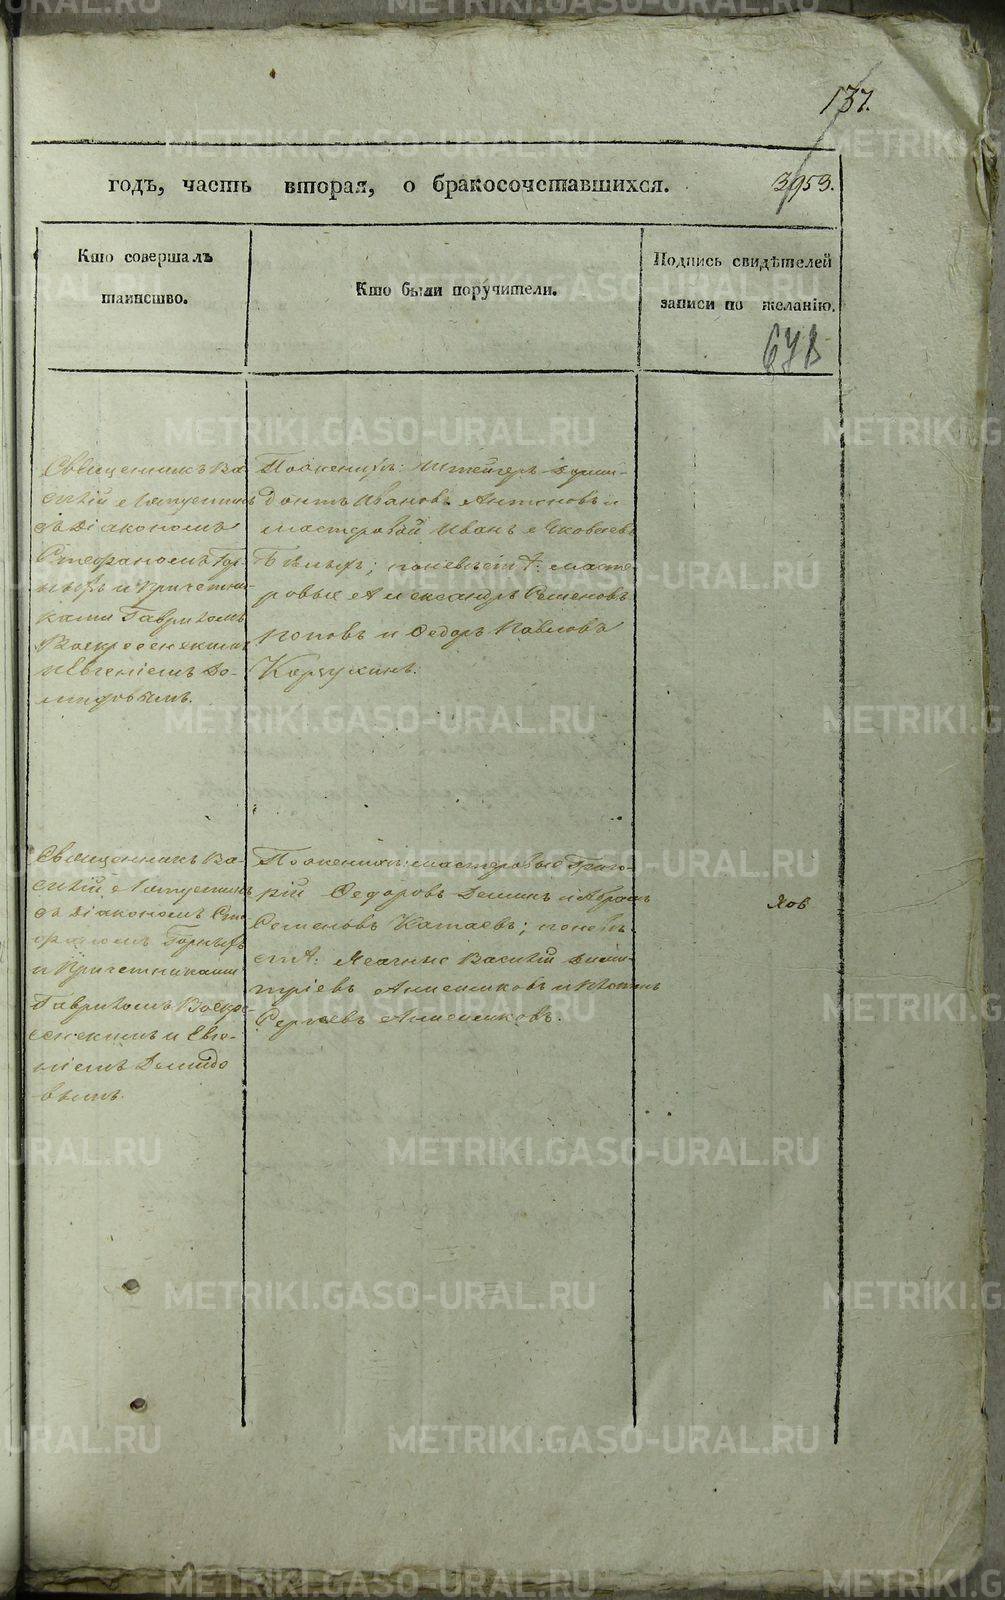 137.
годъ, часть вторая, о бракосочетавшихся.
3953.
Кто совершалъ
таинство.
Кто были поручители.
Подпись свидѣтелей
записи по желанію.
678
Священникъ Ва-
силій Лапустинъ
съ Діакономъ
Стефаномъ Гор-
ныхъ и Причетни-
ками Гавриломъ
Воскресенскимъ
и Евгеніемъ До-
мидовымъ.
По женихѣ: Штейгеръ
Ивановъ Антоновъ и
мастеровой Иванъ Яковлевъ
Бѣлыхъ; по невѣстѣ: масте-
ровые Александръ Семеновъ
Поповъ и Федоръ Павловъ
Священникъ Ва-
силій Лапустинъ
съ Діакономъ Сте-
фаномъ Горныхъ
и Причетниками
Гавриломъ Воскре-
сенскимъ и Евге-
ніемъ Демидо
вымъ.
По женихѣ: мастеровые Григо-
рій Федоровъ Деминъ и Абрамъ
Семеновъ Катаевъ; по невѣ-
стѣ: Василій Дими-
тріевъ Анисимковъ и
Сергѣевъ Анисимковъ.
METRIKI.GASO-URAL.RU